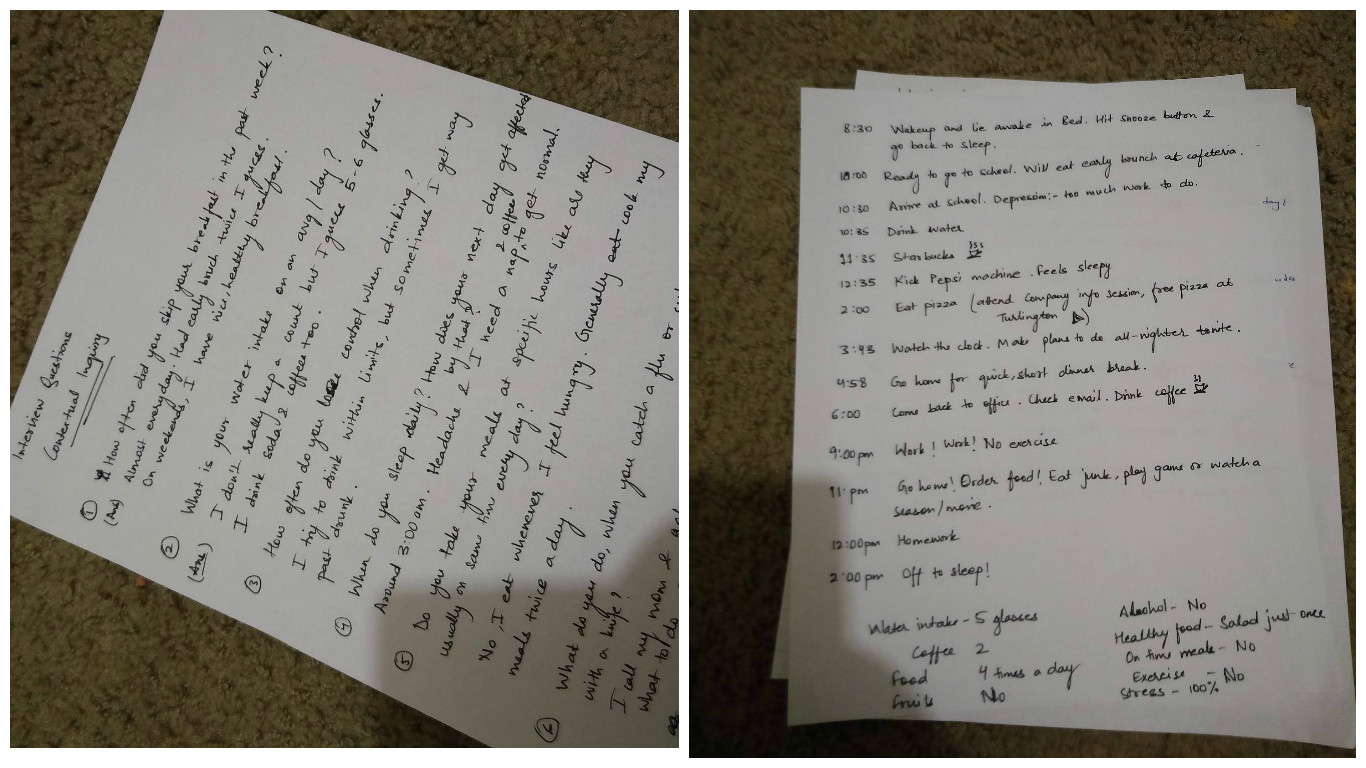 Interview Questions
Contextual Inquiry
① How often did you skip your breakfast in the past week?
(Ans) Almost everyday. Had early brunch twice I guess.
On weekends, I have nice, healthy breakfast.
② What is your water intake on an avg/day?
(Ans) I don't really keep a count but I guess 5-6 glasses.
I drink soda & coffee too.
③ How often do you control when drinking?
I try to drink within limits, but sometimes, I get way
past drunk.
④ When do you sleep daily? How does your next day get affected
by that?
Around 3:00am. Headache & I need a nap, 2 coffee to get normal.
⑤ Do you take your meals at specific hours like are they
usually on same time every day?
No, I eat whenever I feel hungry. Generally eat cook my
meals twice a day.
⑥ What do you do, when you catch a flu or
with a knife?
I call my mom &
what to do
8:30 Wakeup and lie awake in Bed. Hit snooze button &
go back to sleep.
10:00 Ready to go to school. Will eat early brunch at cafeteria.
10:30 Arrive at school. Depression:- too much work to do.
10:35 Drink water
11:35 Starbucks
12:35 Kick Pepsi machine. Feels sleepy
2:00 Eat pizza (attend Company info session, free pizza at
Turlington)
3:43 Watch the clock. Make plans to do all-nighter tonite.
4:58 Go home for quick, short dinner break.
6:00 Come back to office. Check email. Drink coffee
9:00pm Work! Work! No exercise
11:pm Go home! Order food! Eat junk, play game or watch a
season/movie.
12:00pm Homework
2:00pm Off to sleep!
Water intake - 5 glasses
Coffee 2
Food 4 times a day
fruits No
Alcohol - No
Healthy food - Salad just once
On time meals - No
Exercise - No
Stress - 100%